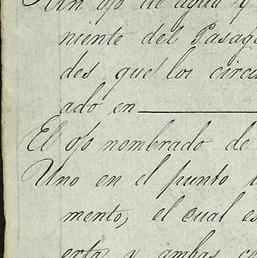 Un ojo de agua y
niente del Pasag
des que los circu
ado en
El ojo nombrado de
Uno en el punto
mento, el cual es
erta y ambas